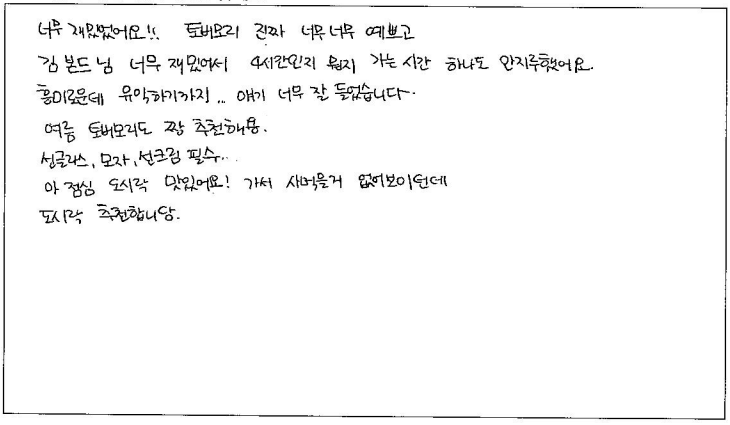 너무 재밌었어요!! 토버모리 진짜 너무너무 예쁘고
김본드님 너무 재밌어서 4시간인지 뭔지 가는 시간 하나도 안지루했어요.
흥미로운데 유익하기까지... 얘기 너무 잘 들었습니다.
여름 토버모리도 짱 추천해용.
선글라스, 모자, 선크림 필수..
아 점심 도시락 맛있어요! 가서 사먹을거 없어보이던데
도시락 추천합니당.